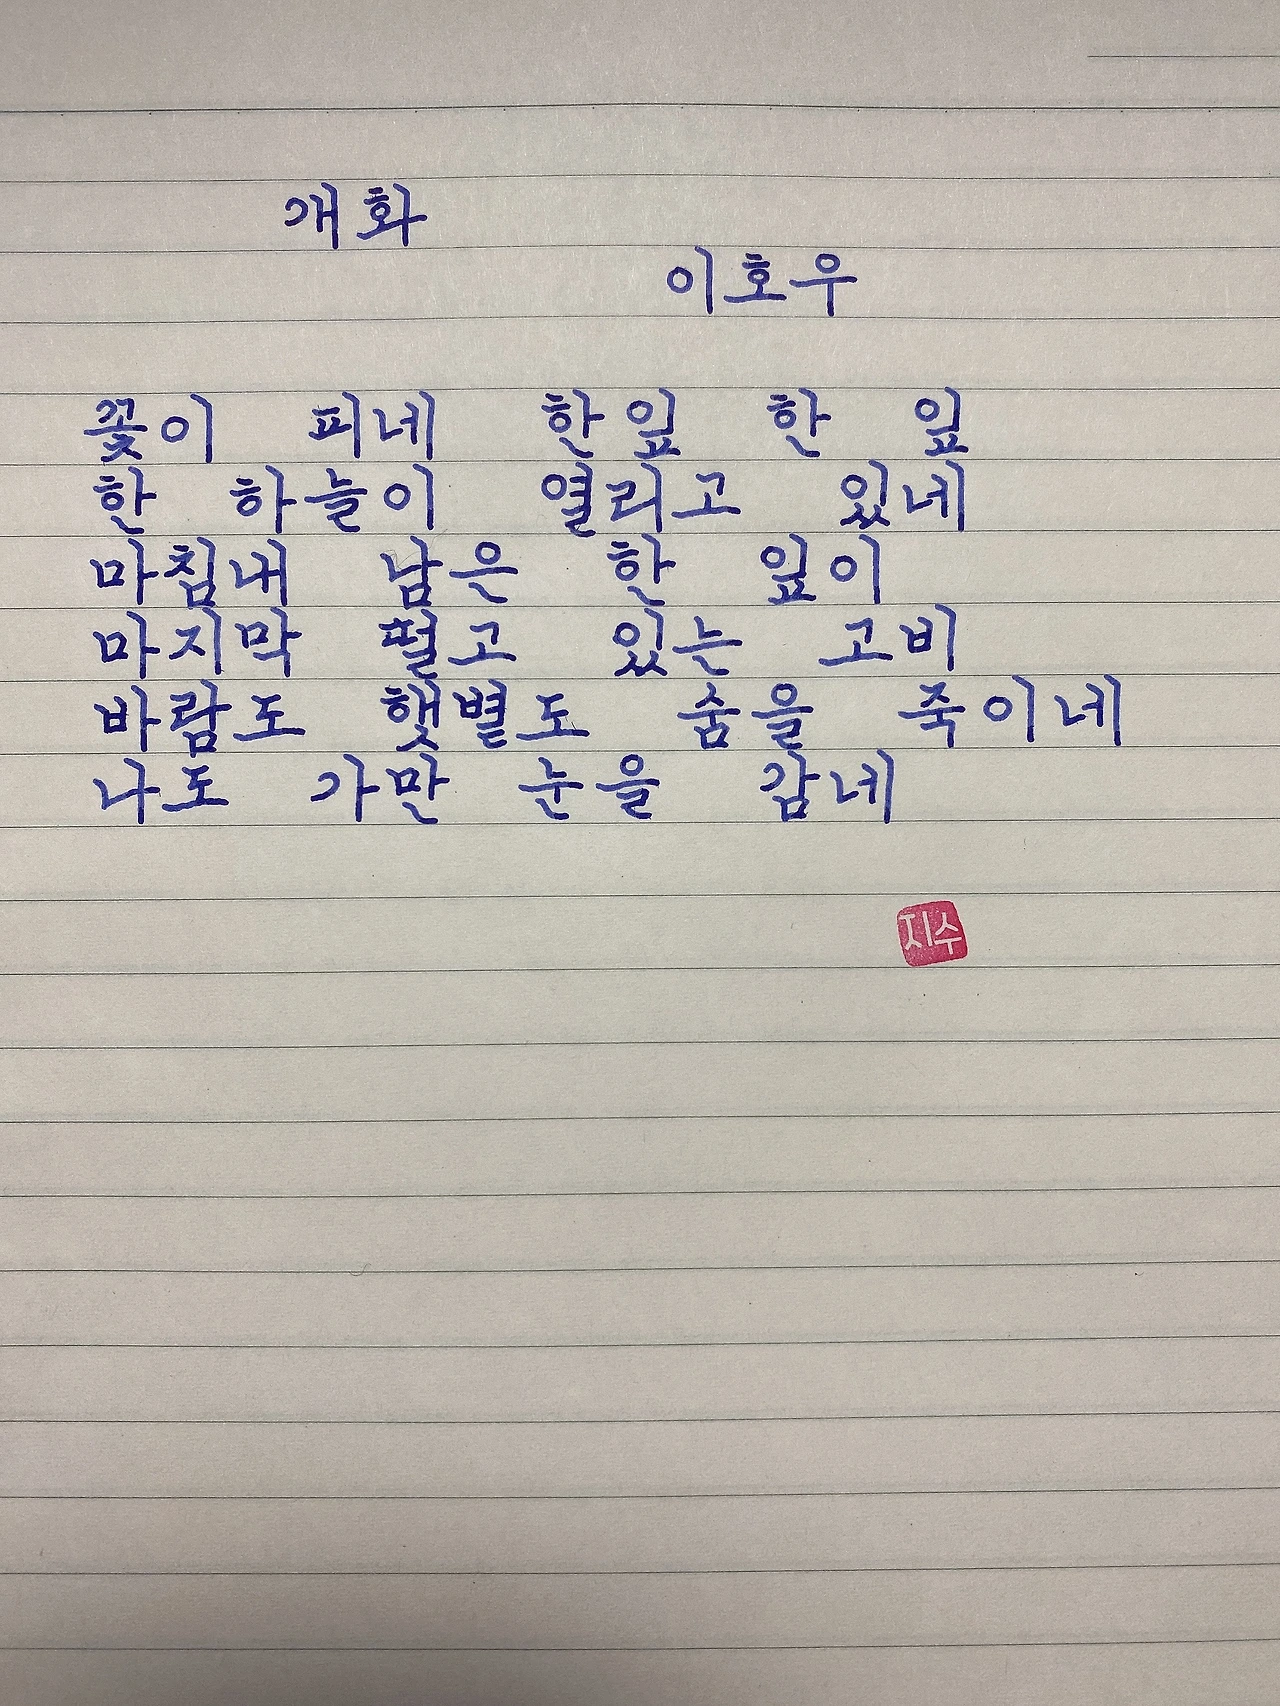 개화
이호우
꽃이 피네 한잎 한 잎
한 하늘이 열리고 있네
마침내 남은 한 잎이
마지막 떨고 있는 고비
바람도 햇볕도 숨을 죽이네
나도 가만 눈을 감네
지수